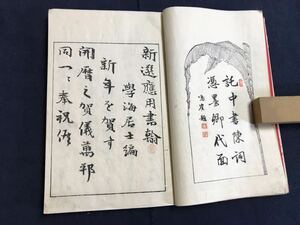 託中書陳詞
憑墨卿代面
新選應用書翰
學海居士編
新年を賀す
開暦之賀儀萬邦
同一ニ奉祝候